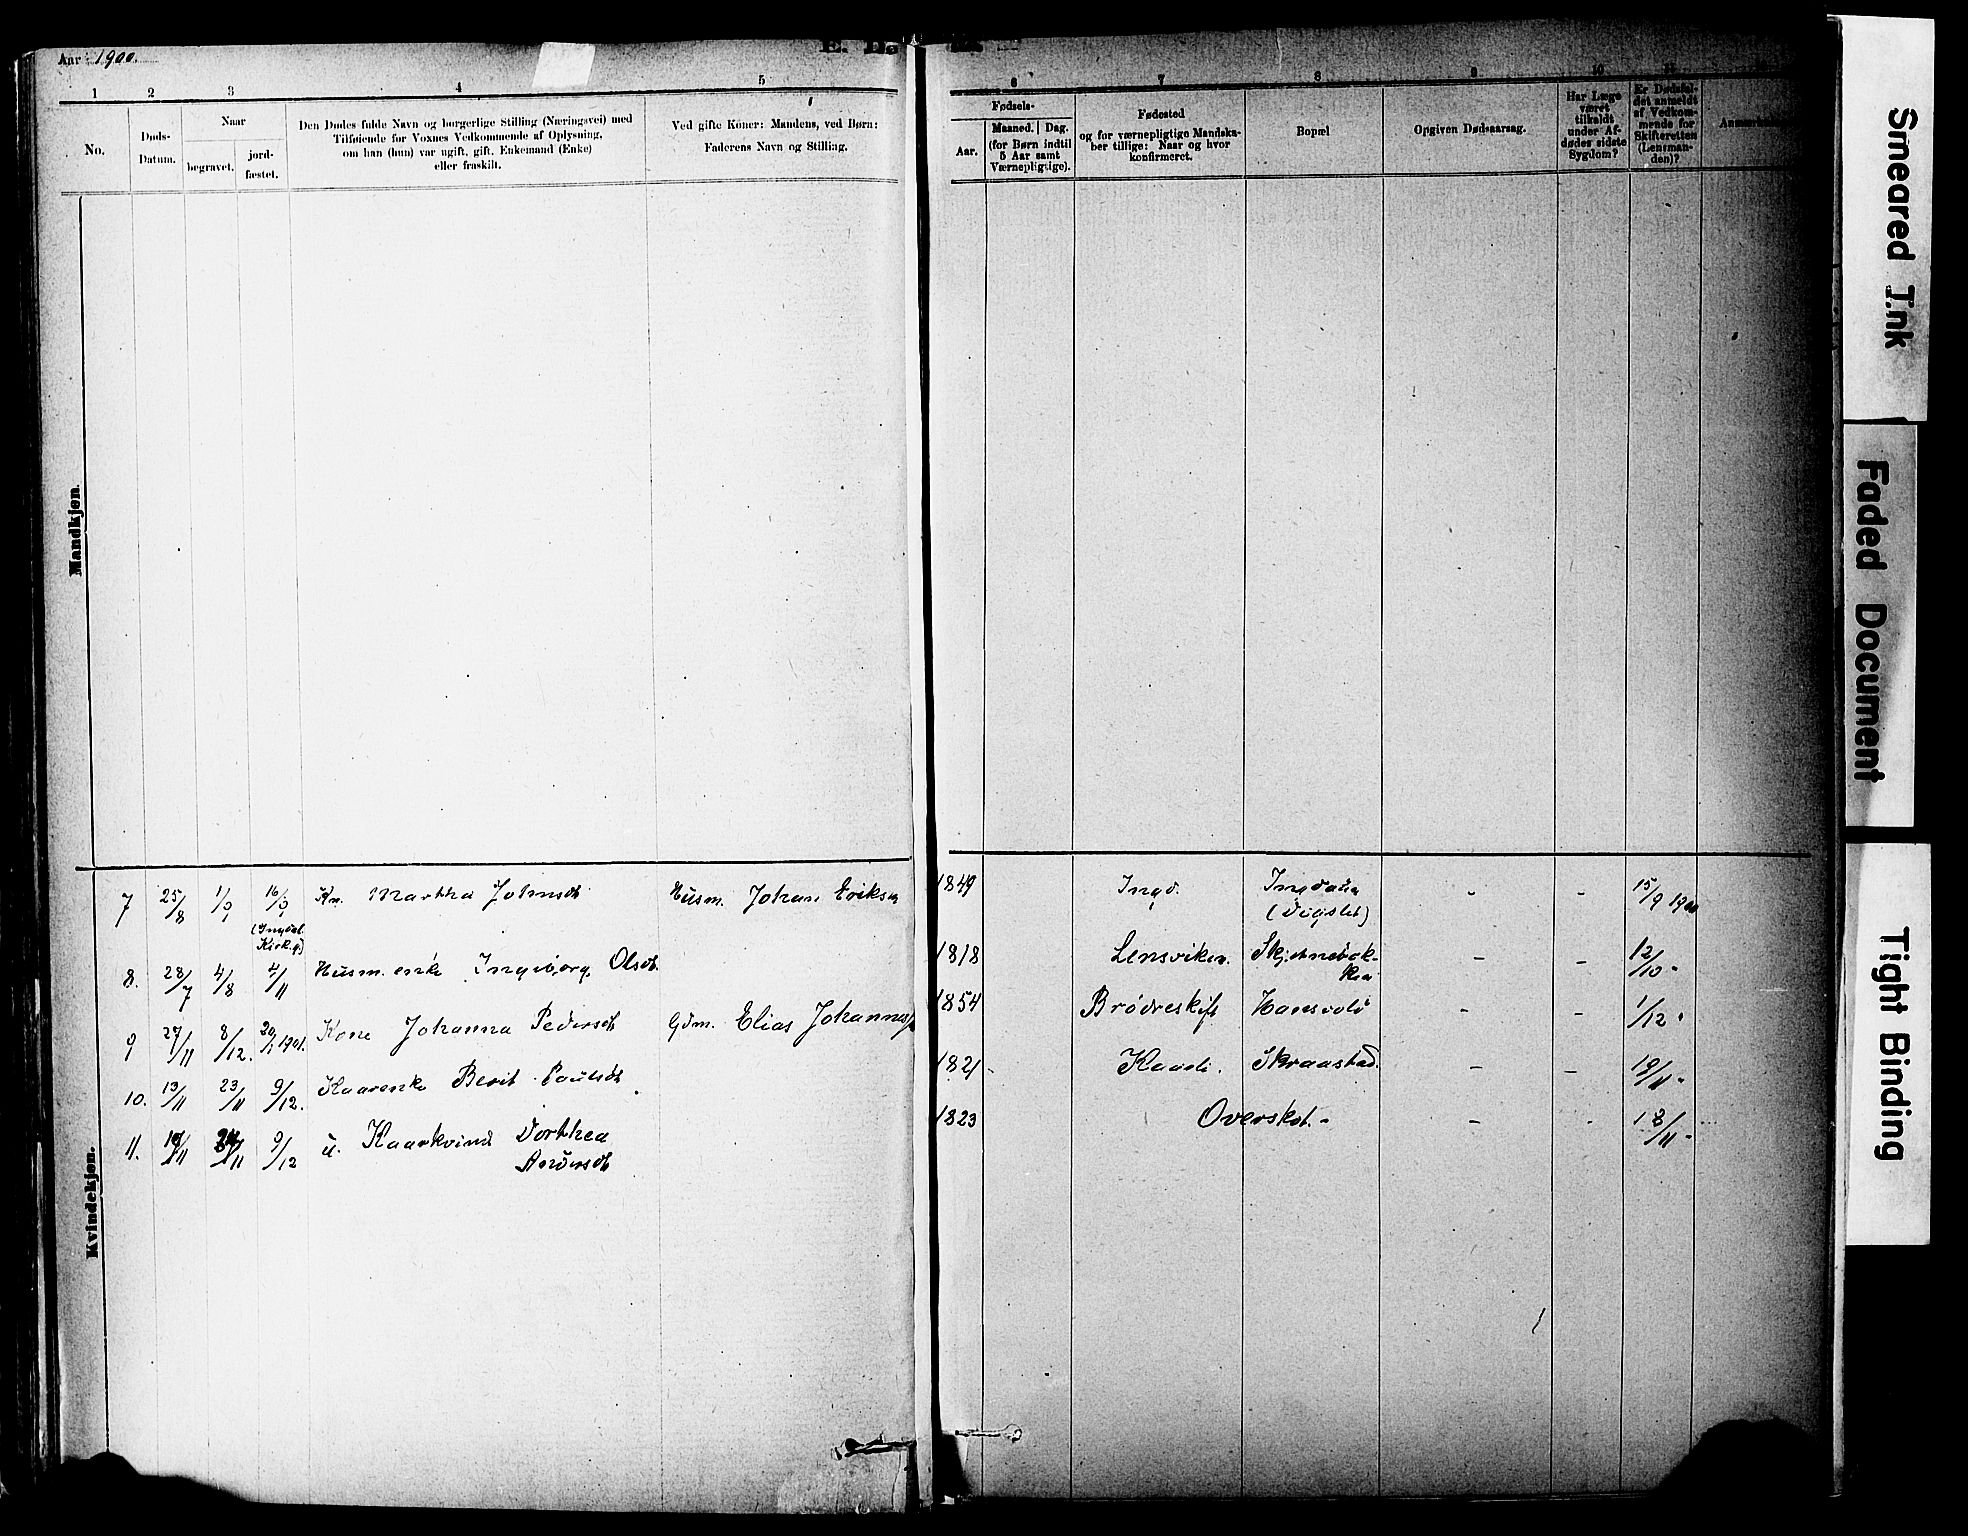 Aar 1900.
1 2 3 4 5
No.
Døds-
Datum.
Naar
begravet.
jord-
fæstet.
Den Dødes fulde Navn og borgerlige Stilling (Næringsvei) med
Tilføiende for Voxnes Vedkommende af Oplysning,
om han (hun) var ugift, gift, Enkemand (Enke)
eller fraskilt.
Ved gifte Koner: Mandens, ved Børn:
Faderens Navn og Stilling.
6 7 8 9 10
Fødsels-
Aar.
Maaned. Dag.
(for Børn indtil
5 Aar samt
Værnepligtige).
Fødested
og for værnepligtige Mandska-
ber tillige: Naar og hvor
konfirmeret.
Bopæl
Opgiven Dødsaarsag.
Har Læge
været
tilkaldt
under Af-
dødes sidste
Sygdom?
Er Dødsfal-
det anmeldt
af Vedkom-
mende for
Skifteretten
(Lensman-
den)?
Mandkjøn.
Kvindekjøn.
7 25/8 1/9 16/9 Kn. Martha Johnsdt Husm. Johan Eriksen 1849 Ingd. Ingdalen - - 15/9 1900
(Ingdal. Kirk.g.) (Vugslet)
8. 28/7 4/8 4/11 Husm. enke Ingeborg Olsdt. 1818 Lensviken. Skjetnebak-
ken - - 12/10 "
9 27/11 8/12. 20/1 1901. Kone Johanna Pedersdt Gdm. Elias Johannes 1854 Brødreskift Hansvold - - 1/12 "
10. 13/11 23/11 9/12. Kaarenke Berit Paulsdt 1821 Skraastad. - - 19/11 "
11. 24/11 9/12 u. Kaarkvind Dorthea
Andersdt 1823 Overskot. - - - 18/11 "
Smeared Ink
Faded Document
Tight Binding